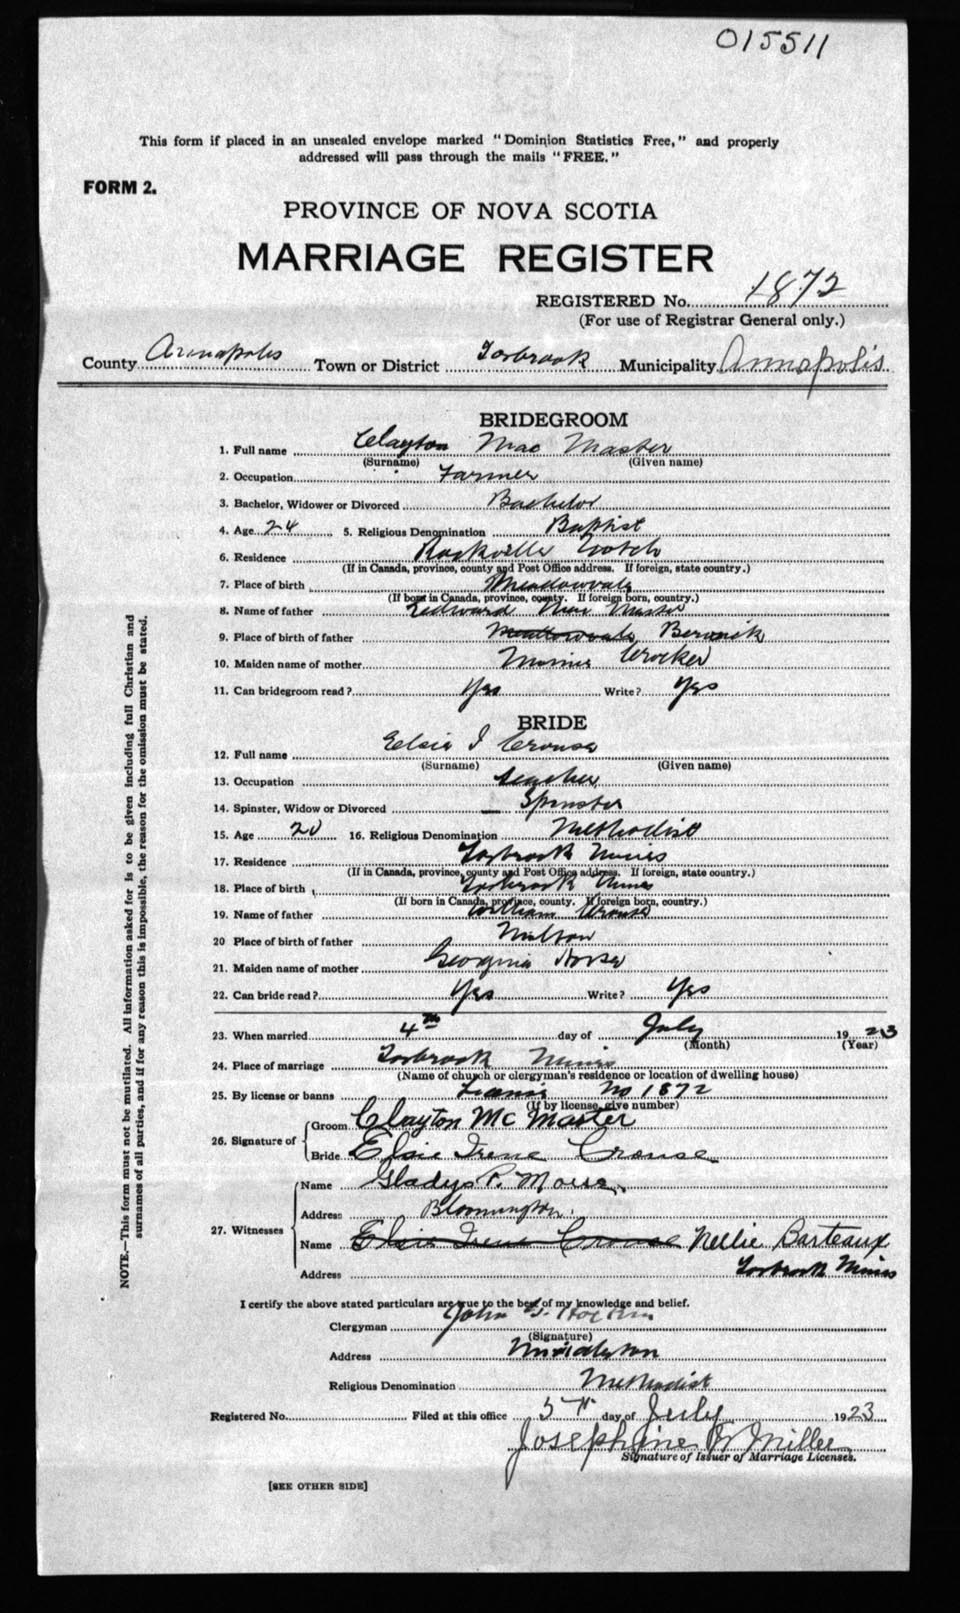 015511
This form if placed in an unsealed envelope marked "Dominion Statistics Free," and properly
addressed will pass through the mails "FREE."
FORM 2.
PROVINCE OF NOVA SCOTIA
MARRIAGE REGISTER
REGISTERED No. 1872
(For use of Registrar General only.)
County Annapolis Town or District Torbrook Municipality Annapolis
BRIDEGROOM
1. Full name Clayton Mac Master
(Surname) (Given name)
2. Occupation Farmer
3. Bachelor, Widower or Divorced Bachelor
4. Age 24 5. Religious Denomination Baptist
6. Residence Rockville Notch
(If in Canada, province, county and Post Office address. If foreign, state country.)
7. Place of birth Meadowvale
(If born in Canada, province, county. If foreign born, country.)
8. Name of father Edward Mac Master
9. Place of birth of father Meadowvale Berwick
10. Maiden name of mother Minnie Crocker
11. Can bridegroom read? Yes Write? Yes
BRIDE
12. Full name Elsie I Crouse
(Surname) (Given name)
13. Occupation teacher
14. Spinster, Widow or Divorced Spinster
15. Age 20 16. Religious Denomination Methodist
17. Residence Torbrook Mines
(If in Canada, province, county and Post Office address. If foreign, state country.)
18. Place of birth Torbrook Mines
(If born in Canada, province, county. If foreign born, country.)
19. Name of father William Crouse
20 Place of birth of father Milton
21. Maiden name of mother Georginia
22. Can bride read? Yes Write? Yes
23. When married 4th day of July 1923
(Month) (Year)
24. Place of marriage Torbrook Mines
(Name of church or clergyman's residence or location of dwelling house)
25. By license or banns No 1872
(If by license, give number)
26. Signature of Groom Clayton Mc Master
Bride Elsie Irene Crouse
27. Witnesses Name Gladys P. Morse
Address Bloomington
Name Elsie Irene Crouse Nellie Barteaux
Address Torbrook Mines
I certify the above stated particulars are true to the best of my knowledge and belief.
Clergyman John G. Hockin
(Signature)
Address Middleton
Religious Denomination Methodist
Registered No. Filed at this office 5th day of July 1923
Josephine Miller
Signature of Issuer of Marriage Licenses.
[SEE OTHER SIDE]
NOTE.—This form must not be mutilated. All information asked for is to be given including full Christian and
surnames of all parties, and if for any reason this is impossible, the reason for the omission must be stated.